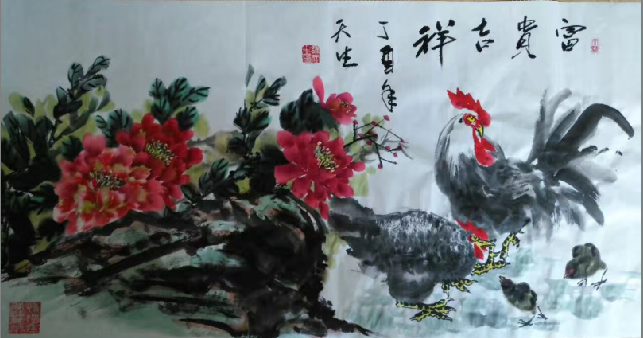 富貴吉祥
丁酉年
天生